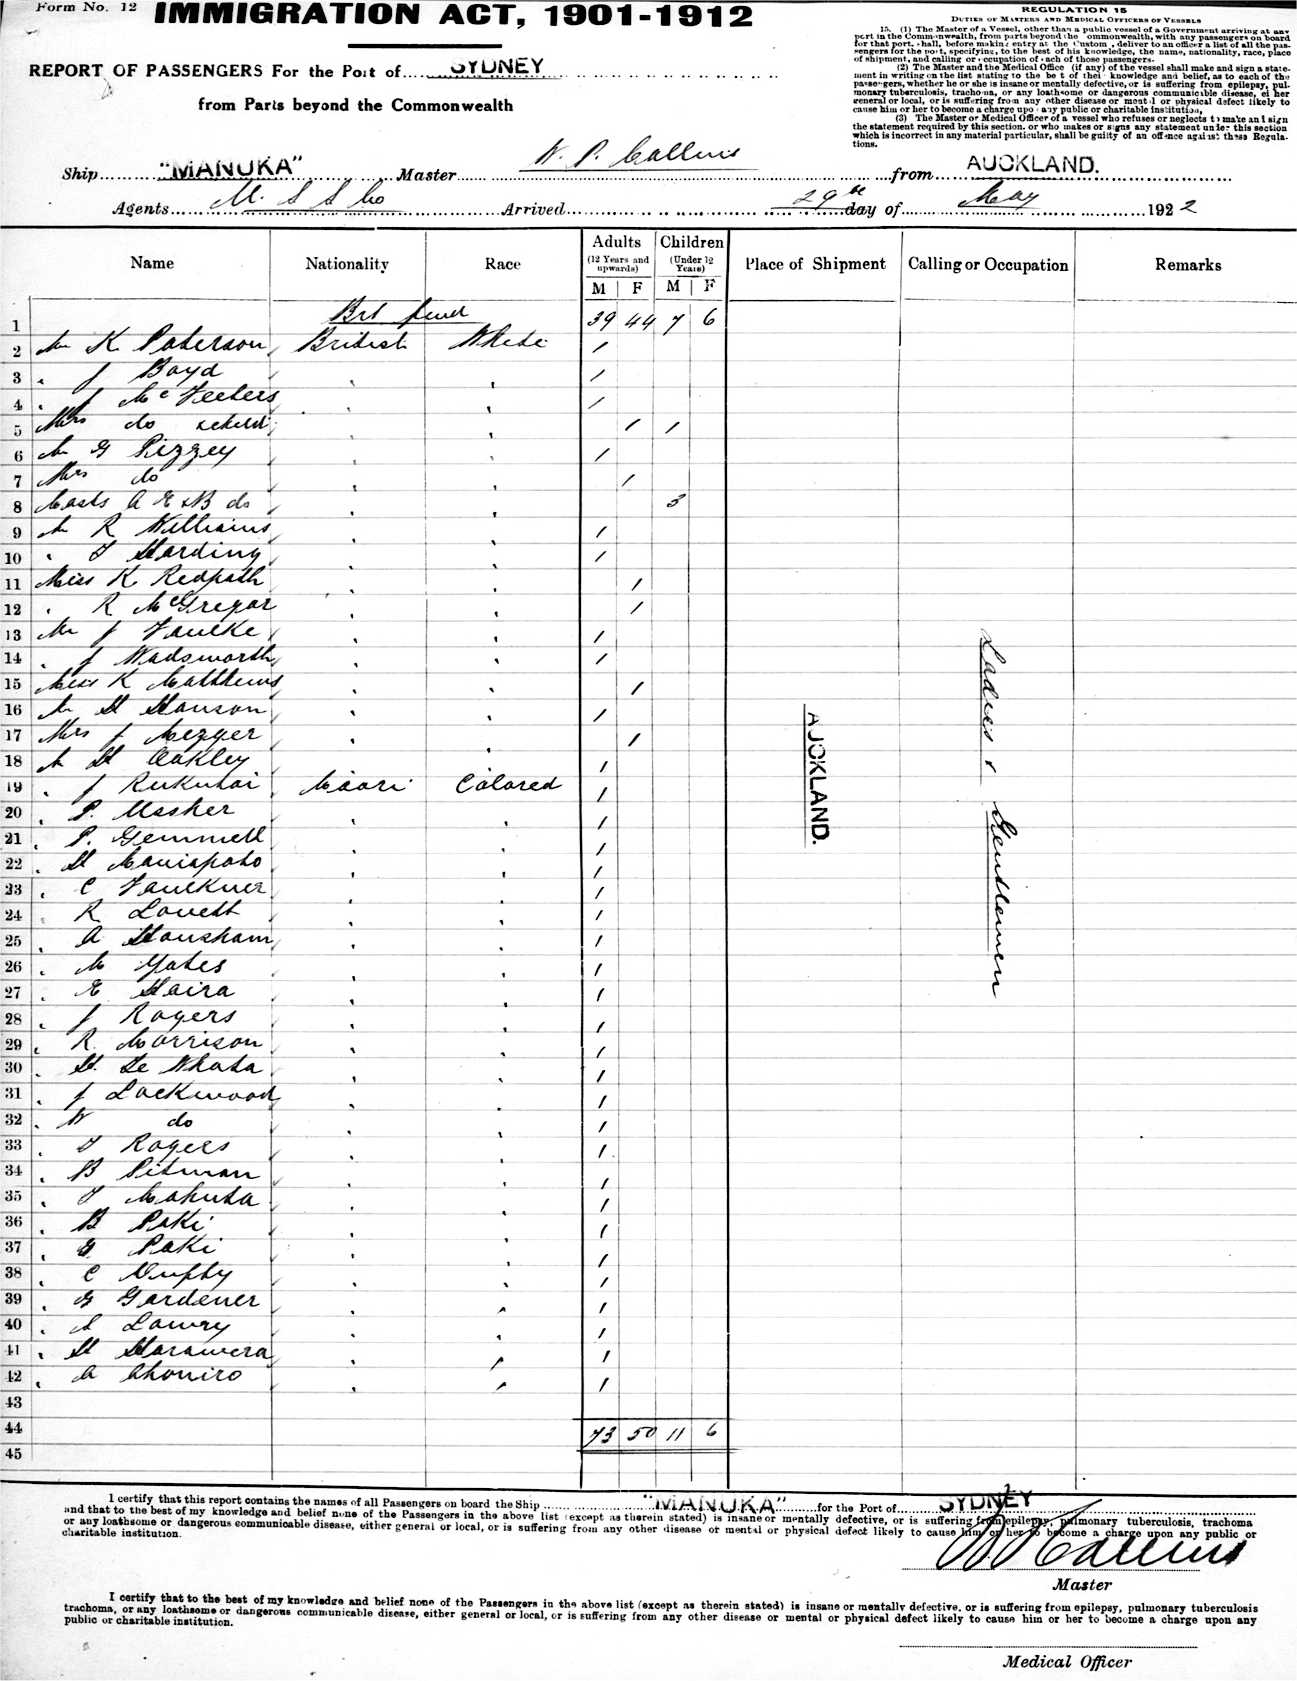 Form No. 12
IMMIGRATION ACT, 1901-1912
REGULATION 15
DUTIES OF MASTERS AND MEDICAL OFFICERS OF VESSELS
15. (1) The Master of a Vessel, other than a public vessel of a Government arriving at any
port in the Commonwealth, from parts beyond the ommonwealth, with any passengers on board
for that port, shall, before making entry at the Custom , deliver to an officer a list of all the pas-
sengers for the port, specifying, to the best of his knowledge, the name, nationality, race, place
of shipment, and calling or occupation of each of those passengers.
(2) The Master and the Medical Office (if any) of the vessel shall make and sign a state-
ment in writing on the list stating to the be t of thei knowledge and belief, as to each of the
passengers, whether he or she is insane or mentally defective, or is suffering from epilepsy, pul-
monary tuberculosis, trachoma, or any loathsome or dangerous communicable disease, ei her
general or local, or is suffering from any other disease or mental or physical defect likely to
cause him or her to become a charge upon any public or charitable institution,
(3) The Master or Medical Officer of a vessel who refuses or neglects to make an l sign
the statement required by this section, or who makes or signs any statement under this section
which is incorrect in any material particular, shall be guilty of an offence against these Regula-
tions.
REPORT OF PASSENGERS For the Port of SYDNEY
from Parts beyond the Commonwealth
Ship "MANUKA" Master W. P. Collins from AUCKLAND.
Agents U. S S Co Arrived 29th day of May 1922
Name Nationality Race Adults (12 Years and upwards) M F Children (Under 12 Years) M F Place of Shipment Calling or Occupation Remarks
1 Brt fwd 39 44 7 6
2 Mr K Paterson British White /
3 " J Boyd " " /
4 " J McFeeters " " /
5 Mrs do & child " " / /
6 Mr G Pizzey " " /
7 Mrs do " " /
8 Masts A E & B do " " 3
9 Mr R Williams " " /
10 " T Harding " " /
11 Miss K Redpath " " /
12 " R McGregor " " /
13 Mr J Faulke " " /
14 " J Wadsworth " " /
15 Miss K Matthews " " /
16 Mr H Hanson " " /
17 Mrs J Mezger " " /
18 Mr H Oakley " " /
19 " J Rukutai Maori Colored /
20 " P. Masher " " /
21 " P. Gemmell " " /
22 " H Maniapoto " " /
23 " C Faulkner " " /
24 " R Lovett " " /
25 " A Housham " " /
26 " M Yates " " /
27 " E Haira " " /
28 " J Rogers " " /
29 " R. Morrison " " /
30 " H. Te Whata " " /
31 " J Lockwood " " /
32 " W do " " /
33 " T Rogers " " /
34 " B Pitman " " /
35 " T Mahuta " " /
36 " B Paki " " /
37 " G Paki " " /
38 " C " " /
39 " G Gardener " " /
40 " S Lowry " " /
41 " H Harawera " " /
42 " A Ahoniro " " /
43
44 73 50 11 6
45
AUCKLAND.
Ladies & Gentlemen
I certify that this report contains the names of all Passengers on board the Ship "MANUKA" for the Port of SYDNEY
and that to the best of my knowledge and belief none of the Passengers in the above list (except as therein stated) is insane or mentally defective, or is suffering from epilepsy, pulmonary tuberculosis, trachoma
or any loathsome or dangerous communicable disease, either general or local, or is suffering from any other disease or mental or physical defect likely to cause him or her to become a charge upon any public or
charitable institution.
W P Collins
Master
I certify that to the best of my knowledge and belief none of the Passengers in the above list (except as therein stated) is insane or mentally defective, or is suffering from epilepsy, pulmonary tuberculosis
trachoma, or any loathsome or dangerous communicable disease, either general or local, or is suffering from any other disease or mental or physical defect likely to cause him or her to become a charge upon any
public or charitable institution.
Medical Officer